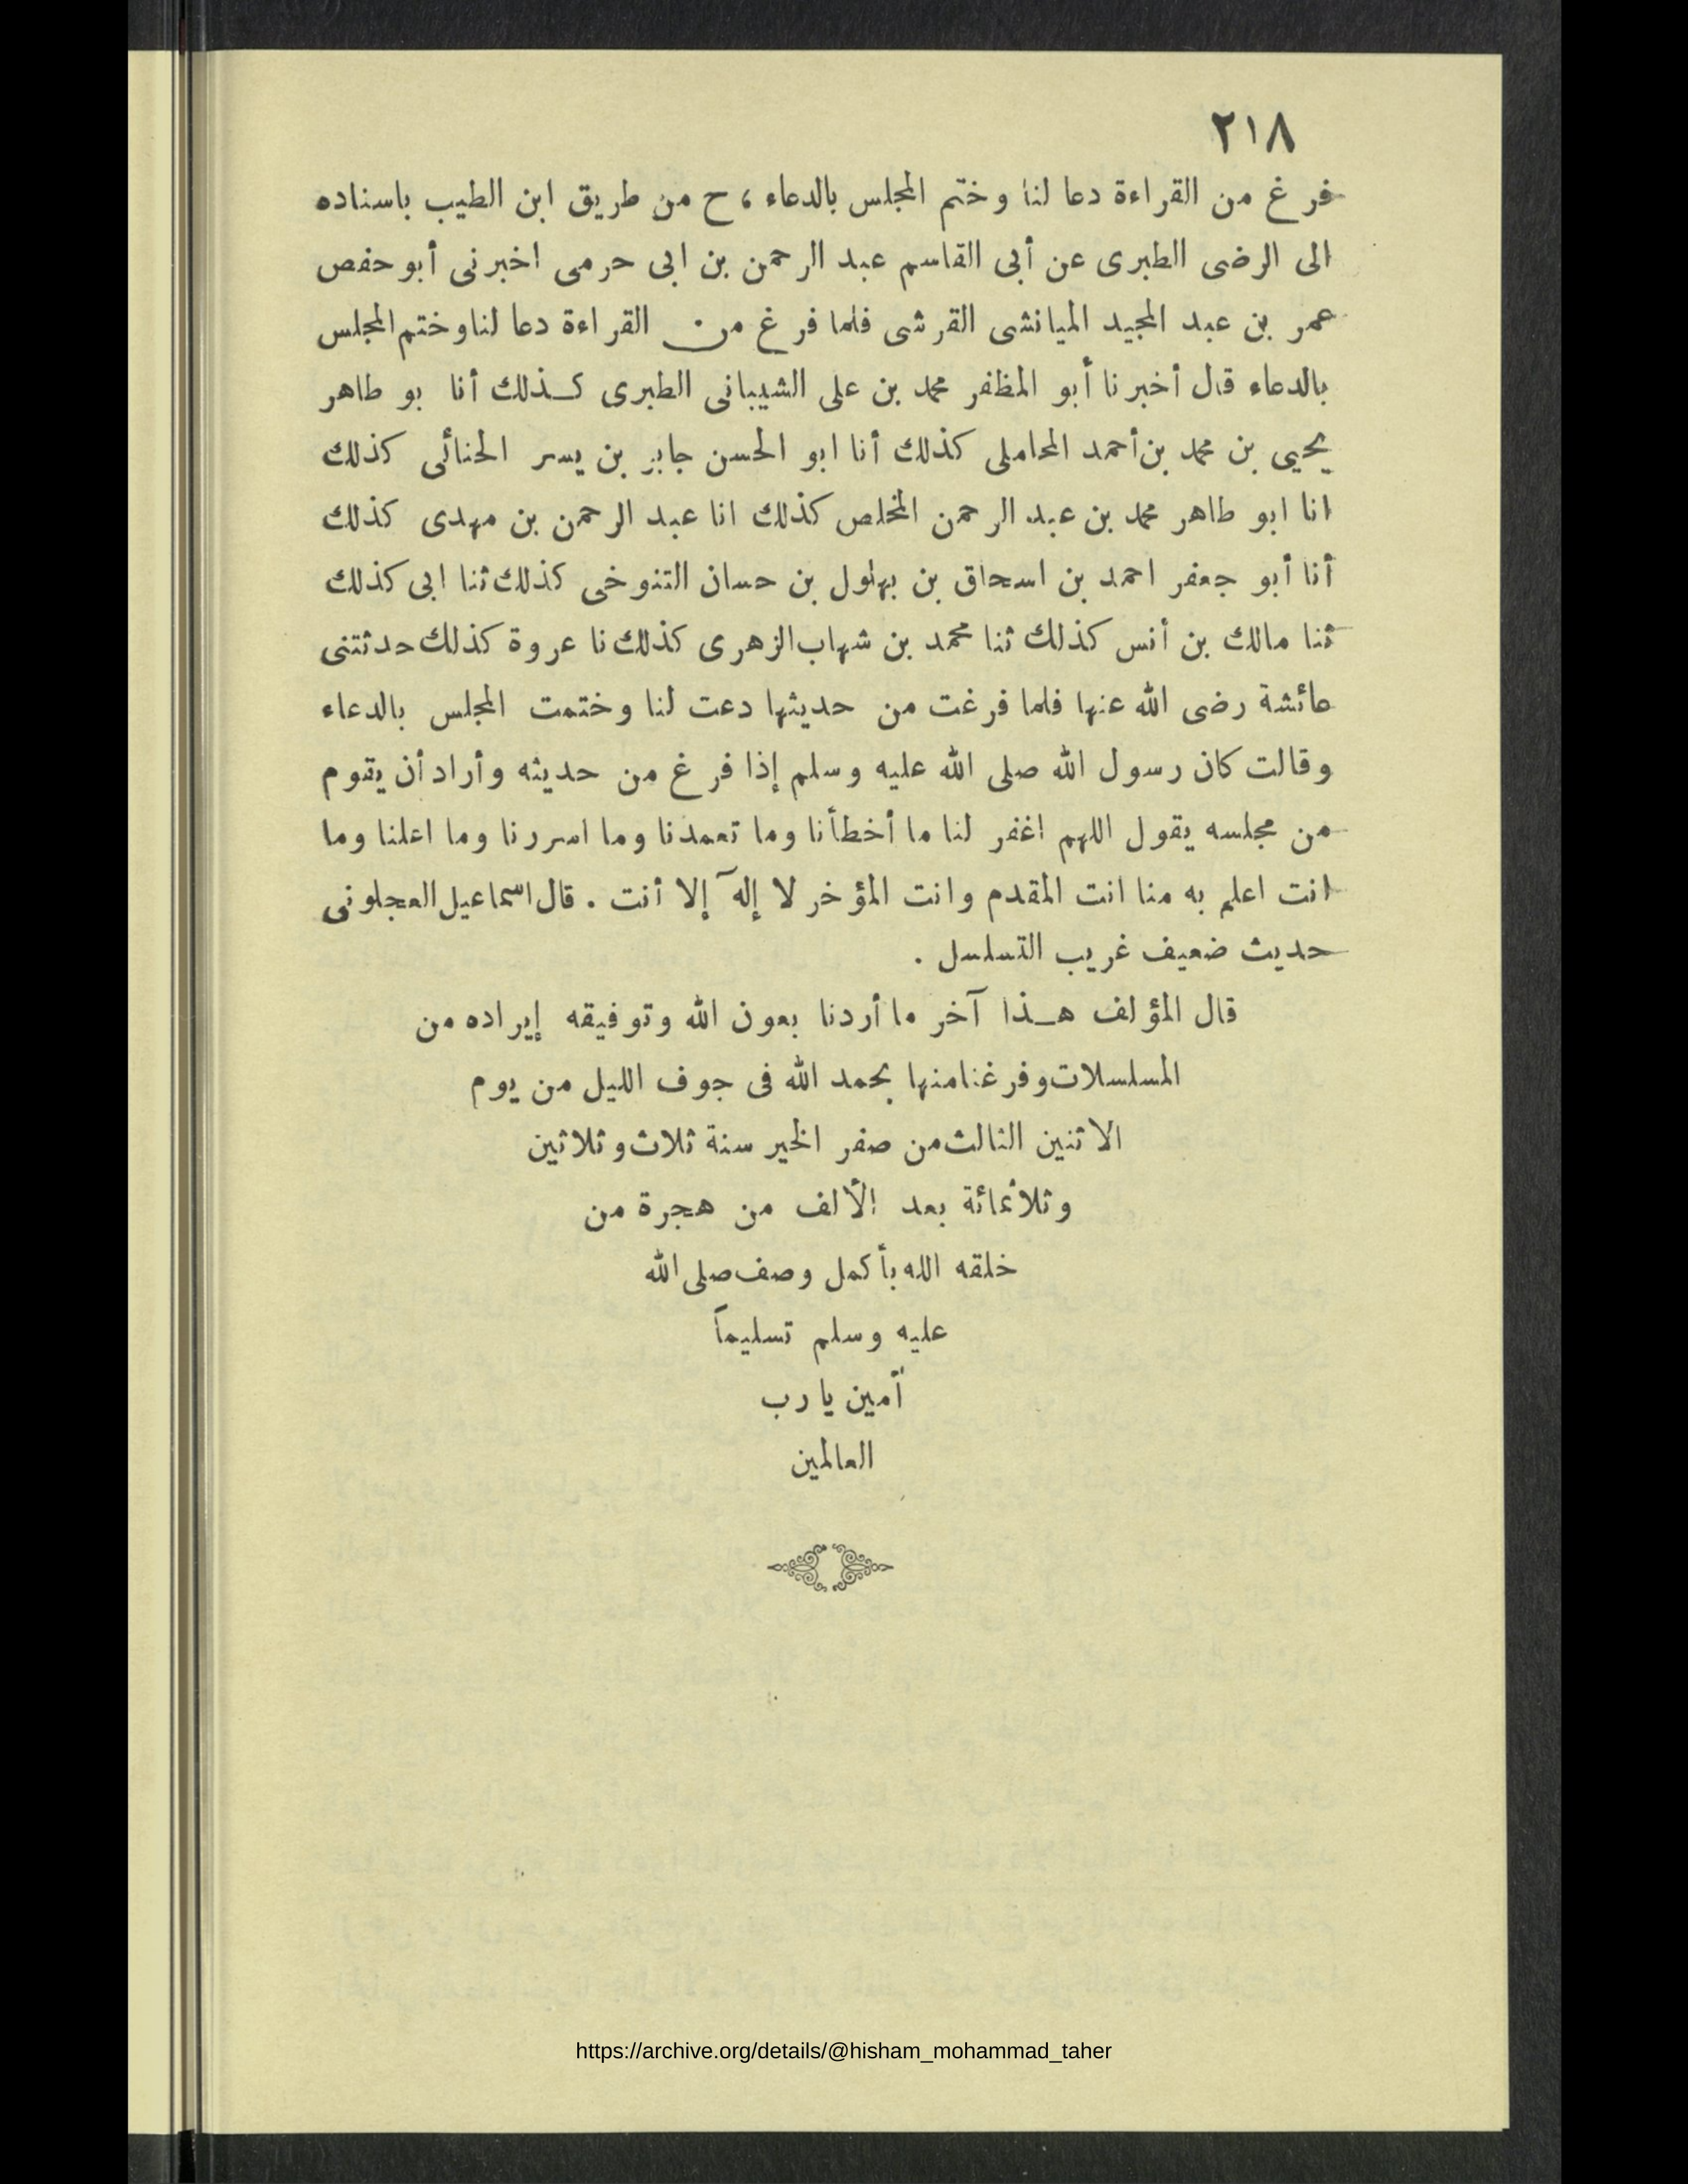 ٢١٨
فرغ من القراءة دعا لنا وختم المجلس بالدعاء ، ح من طريق ابن الطيب باسناده
الى الرضى الطبرى عن أبى القاسم عبد الرحمن بن ابى حرمى اخبرنى أبو حفص
عمر بن عبد المجيد الميانشى القرشى فلما فرغ من القراءة دعا لنا وختم المجلس
بالدعاء قال أخبرنا أبو المظفر محمد بن على الشيبانى الطبرى كـذلك أنا بو طاهر
يحيى بن محمد بن أحمد المحاملى كذلك أنا ابو الحسن جابر بن يسر الحنائى كذلك
انا ابو طاهر محمد بن عبد الرحمن المخلص كذلك انا عبد الرحمن بن مهدى كذلك
أنا أبو جعفر احمد بن اسحاق بن بهلول بن حسان التنوخى كذلك ثنا ابى كذلك
ثنا مالك بن أنس كذلك ثنا محمد بن شهاب الزهرى كذلك نا عروة كذلك حدثتنى
عائشة رضى الله عنها فلما فرغت من حديثها دعت لنا وختمت المجلس بالدعاء
وقالت كان رسول الله صلى الله عليه وسلم إذا فرغ من حديثه وأراد أن يقوم
من مجلسه يقول اللهم اغفر لنا ما أخطأنا وما تعمدنا وما اسررنا وما اعلنا وما
انت اعلم به منا انت المقدم وانت المؤخر لا إلٓه إلا أنت . قال اسماعيل العجلونى
حديث ضعيف غريب التسلسل .
قال المؤلف هـذا آخر ما أردنا بعون الله وتوفيقه إيراده من
المسلسلات وفرغنا منها بحمد الله فى جوف الليل من يوم
الاثنين الثالث من صفر الخير سنة ثلاث وثلاثين
وثلاثمائة بعد الألف من هجرة من
خلقه الله بأكمل وصف صلى الله
عليه وسلم تسليماً
آمين يا رب
العالمين
https://archive.org/details/@hisham_mohammad_taher